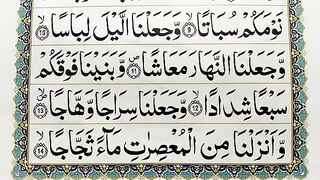 نَوْمَكُمْ سُبَاتًا ۙ﴿9﴾ وَّجَعَلْنَا الَّيْلَ لِبَاسًا ۙ﴿10﴾
وَّجَعَلْنَا النَّهَارَ مَعَاشًا ۪﴿11﴾ وَّبَنَيْنَا فَوْقَكُمْ
سَبْعًا شِدَادًا ۙ﴿12﴾ وَّجَعَلْنَا سِرَاجًا وَّهَّاجًا ۪﴿13﴾
وَّاَنْزَلْنَا مِنَ الْمُعْصِرٰتِ مَآءً ثَجَّاجًا ۙ﴿14﴾